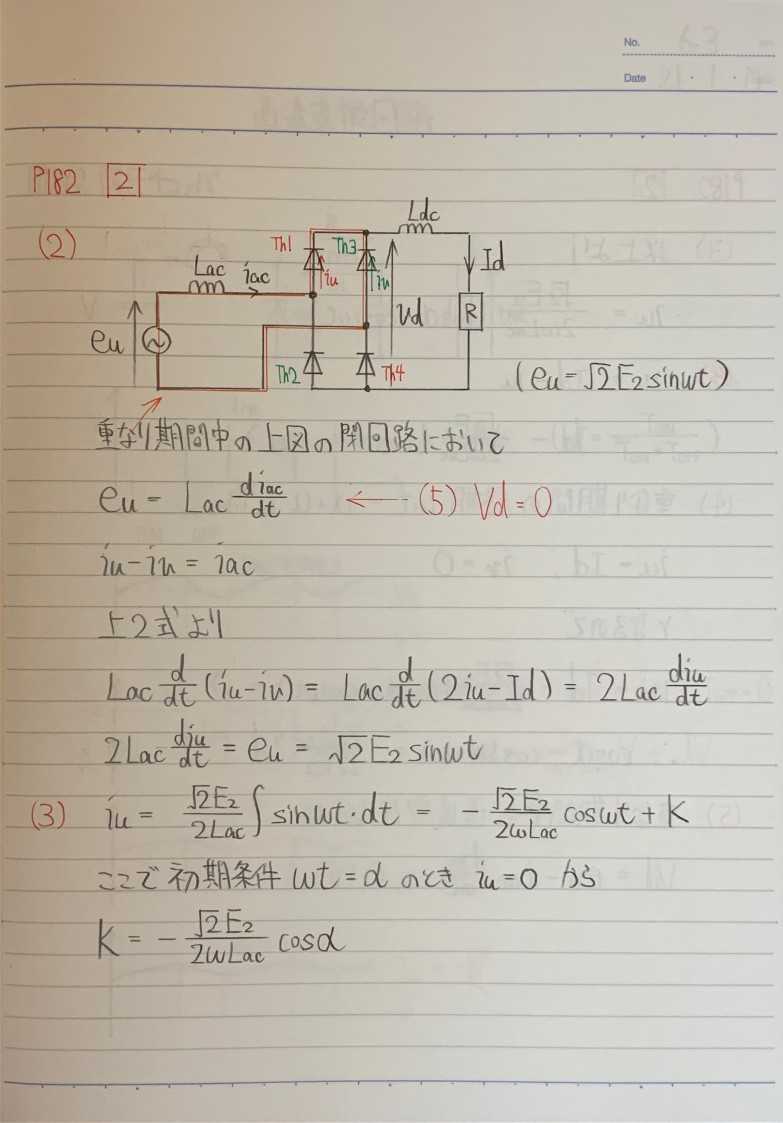 No.
Date
P182 2
(2)
Ldc
Th1 Th3
Lac iac iu iu Id
eu Vd R
Th2 Th4
(eu=√2E2sinωt)
重なり期間中の上図の閉回路において
eu = Lac diac/dt ← (5) Vd=0
iu-iu = iac
上2式より
Lac d/dt (iu-iu) = Lac d/dt (2iu-Id) = 2Lac diu/dt
2Lac diu/dt = eu = √2E2sinωt
(3) iu = √2E2/2Lac ∫sinωt・dt = -√2E2/2ωLac cosωt+K
ここで初期条件 ωt=α のとき iu=0 から
K = -√2E2/2ωLac cosα